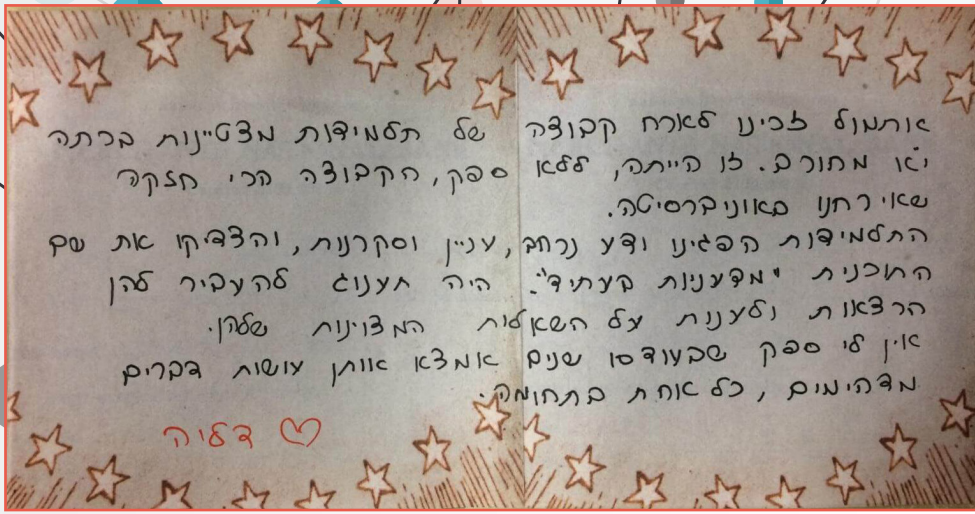 אתמול זכינו לארח קבוצה של תלמידות מצטיינות בכתה
י"א מחורב. זו הייתה, ללא ספק, הקבוצה הכי חזקה
שאירחנו באוניברסיטה.
התלמידות הפגינו ידע נרחב, עניין וסקרנות, והצדיקו את שם
התוכנית "מדעניות בעתיד". היה תענוג להעביר להן
הרצאות ולענות על השאלות המצוינות שלהן.
אין לי ספק שבעוד 10 שנים אמצא אותן עושות דברים
מדהימים, כל אחת בתחומה.
דליה